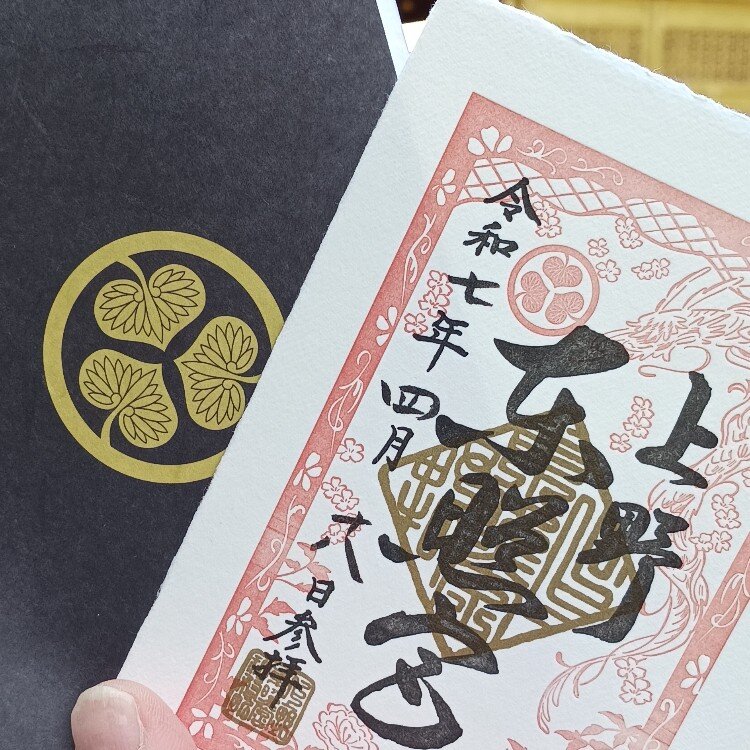 上野
東照宮
令和七年四月六日参拝